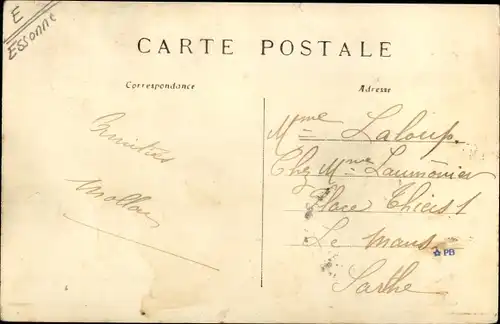 E
Essonne
CARTE POSTALE
Correspondance
Adresse
Amitiés
Mme Laloup.
Chez Mme Laumônier
Place Thiers 1
Le Mans
PB
Sarthe